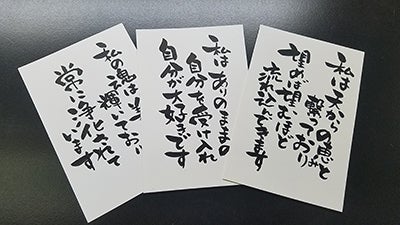 私は天から
の恵みと
繋っており
望めば望むほど
流れ込んできます
私はありのままの
自分を受け入れ
自分が大好きです
私の魂は
輝いており
常に浄化されて
います